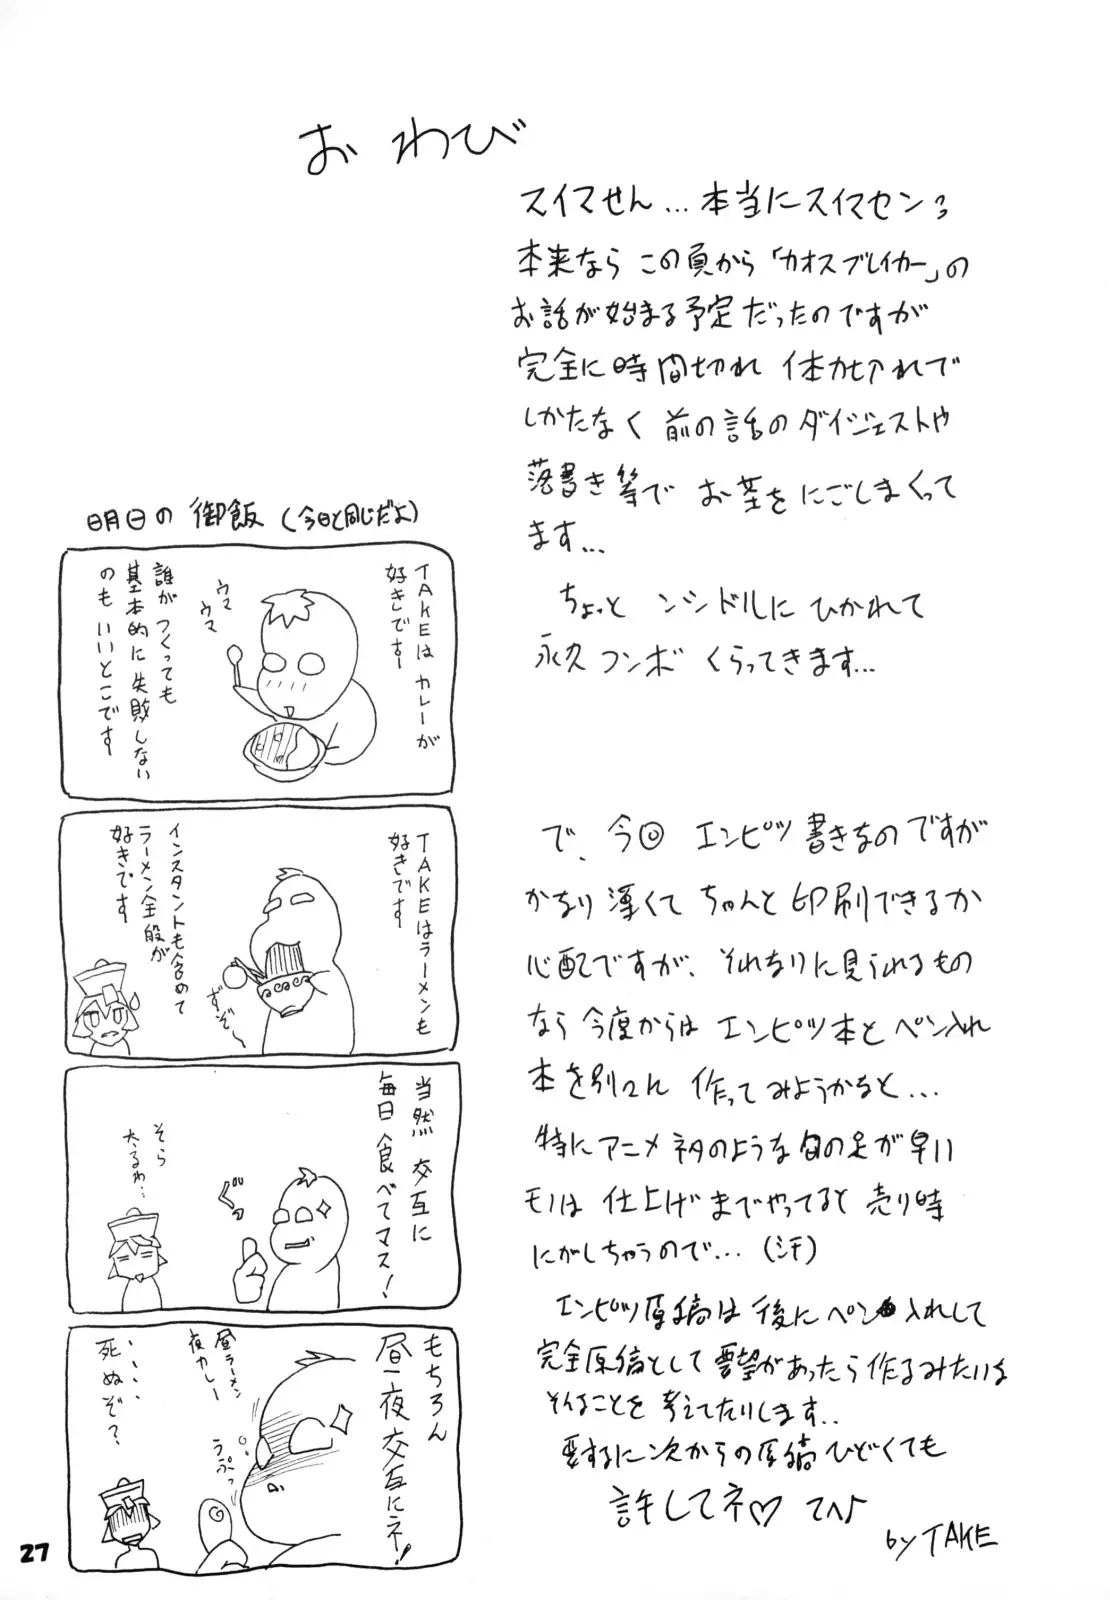 おわび
スイマせん…本当にスイマセン
本来なら この頁から「カオスブレイカー」の
お話が始まる予定だったのですが
完全に時間切れ 体力切れで
しかたなく 前の話のダイジェストや
落書き等で お茶をにごしまくって
ます…
ちょっと ンシドルに ひかれて
永久コンボ くらってきます…
で、今回 エンピツ書きなのですが
かなり薄くて ちゃんと印刷できるか
心配ですが、それなりに見られるもの
なら 今度からは エンピツ本と ペン入れ
本を別々に 作ってみようかなと…
特にアニメネタのような 旬の足が早い
モノは 仕上げまでやってると 売り時
にがしちゃうので…(汗)
エンピツ原稿は 後に ペン入れして
完全原稿として 要望があったら 作るみたいな
そんなことを 考えてたりします..
要するに 次からの原稿 ひどくても
許してネ♡ てへ♪
by TAKE
明日の 御飯 (今日と同じだよ)
TAKEは カレーが
好きです
ウマ
ウマ
誰が つくっても
基本的に 失敗しない
のも いいとこです
TAKEはラーメンも
好きです
ずぞ〜
インスタントも含めて
ラーメン全般が
好きです
当然 交互に
毎日 食べてマス!
ぐっ
そら
太るわ…
もちろん
昼夜交互にネ!
うぷっ
昼ラーメン
夜カレー
・・・・
死ぬぞ?
27